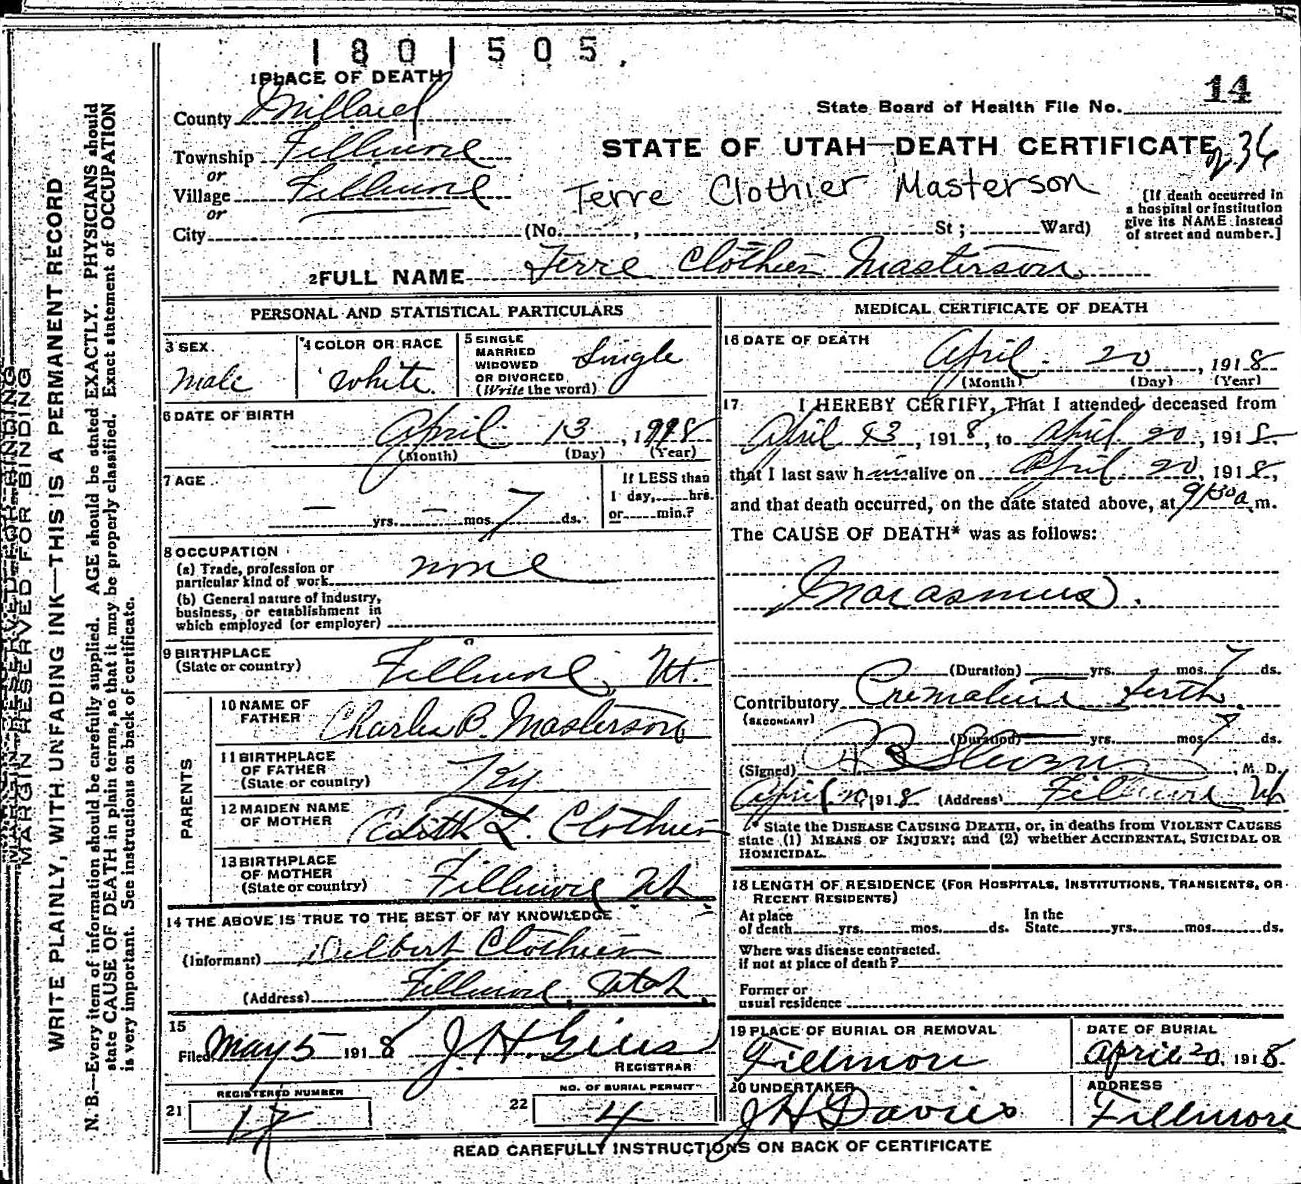 1801505.
1 PLACE OF DEATH
14
State Board of Health File No.
County Millard
STATE OF UTAH—DEATH CERTIFICATE
236
Township Fillmore
or
Village Fillmore
or
Terre Clothier Masterson
[If death occurred in
a hospital or institution
give its NAME instead
of street and number.]
City (No. , St ; Ward)
2 FULL NAME Terre Clothier Masterson
PERSONAL AND STATISTICAL PARTICULARS
3 SEX
male
4 COLOR OR RACE
White
5 SINGLE
MARRIED
WIDOWED
OR DIVORCED
(Write the word)
Single
6 DATE OF BIRTH
April 13, 1918
(Month) (Day) (Year)
7 AGE
— yrs. — mos. 7 ds.
If LESS than
1 day, hrs.
or min.?
8 OCCUPATION
(a) Trade, profession or
particular kind of work none
(b) General nature of industry,
business, or establishment in
which employed (or employer)
9 BIRTHPLACE
(State or country) Fillmore, Ut.
PARENTS
10 NAME OF
FATHER Charles B. Masterson
11 BIRTHPLACE
OF FATHER
(State or country) Ky
12 MAIDEN NAME
OF MOTHER Edith L. Clothier
13 BIRTHPLACE
OF MOTHER
(State or country) Fillmore Ut
14 THE ABOVE IS TRUE TO THE BEST OF MY KNOWLEDGE
(Informant) Delbert Clothier
(Address) Fillmore, Utah
15
Filed May 5 1918 J. H. Giles
REGISTRAR
REGISTERED NUMBER
21
NO. OF BURIAL PERMIT
22 4
MEDICAL CERTIFICATE OF DEATH
16 DATE OF DEATH
April 20, 1918
(Month) (Day) (Year)
17 I HEREBY CERTIFY, That I attended deceased from
April 13, 1918, to April 20, 1918.
that I last saw him alive on April 20, 1918,
and that death occurred, on the date stated above, at 9:50 a.m.
The CAUSE OF DEATH* was as follows:
Marasmus.
(Duration) yrs. mos. 7 ds.
Contributory Premature birth.
(SECONDARY)
(Duration) yrs. mos. 7 ds.
(Signed) , M. D.
April 20, 1918 (Address) Fillmore Ut
* State the DISEASE CAUSING DEATH, or, in deaths from VIOLENT CAUSES
state (1) MEANS OF INJURY; and (2) whether ACCIDENTAL, SUICIDAL OR
HOMICIDAL.
18 LENGTH OF RESIDENCE (FOR HOSPITALS, INSTITUTIONS, TRANSIENTS, OR
RECENT RESIDENTS)
At place
of death yrs. mos. ds.
In the
State yrs. mos. ds.
Where was disease contracted.
if not at place of death?
Former or
usual residence
19 PLACE OF BURIAL OR REMOVAL
Fillmore
DATE OF BURIAL
April 20, 1918
20 UNDERTAKER
J H Davies
ADDRESS
Fillmore
READ CAREFULLY INSTRUCTIONS ON BACK OF CERTIFICATE
MARGIN RESERVED FOR BINDING
WRITE PLAINLY, WITH UNFADING INK—THIS IS A PERMANENT RECORD
N. B.—Every item of information should be carefully supplied. AGE should be stated EXACTLY. PHYSICIANS should
state CAUSE OF DEATH in plain terms, so that it may be properly classified. Exact statement of OCCUPATION
is very important. See instructions on back of certificate.